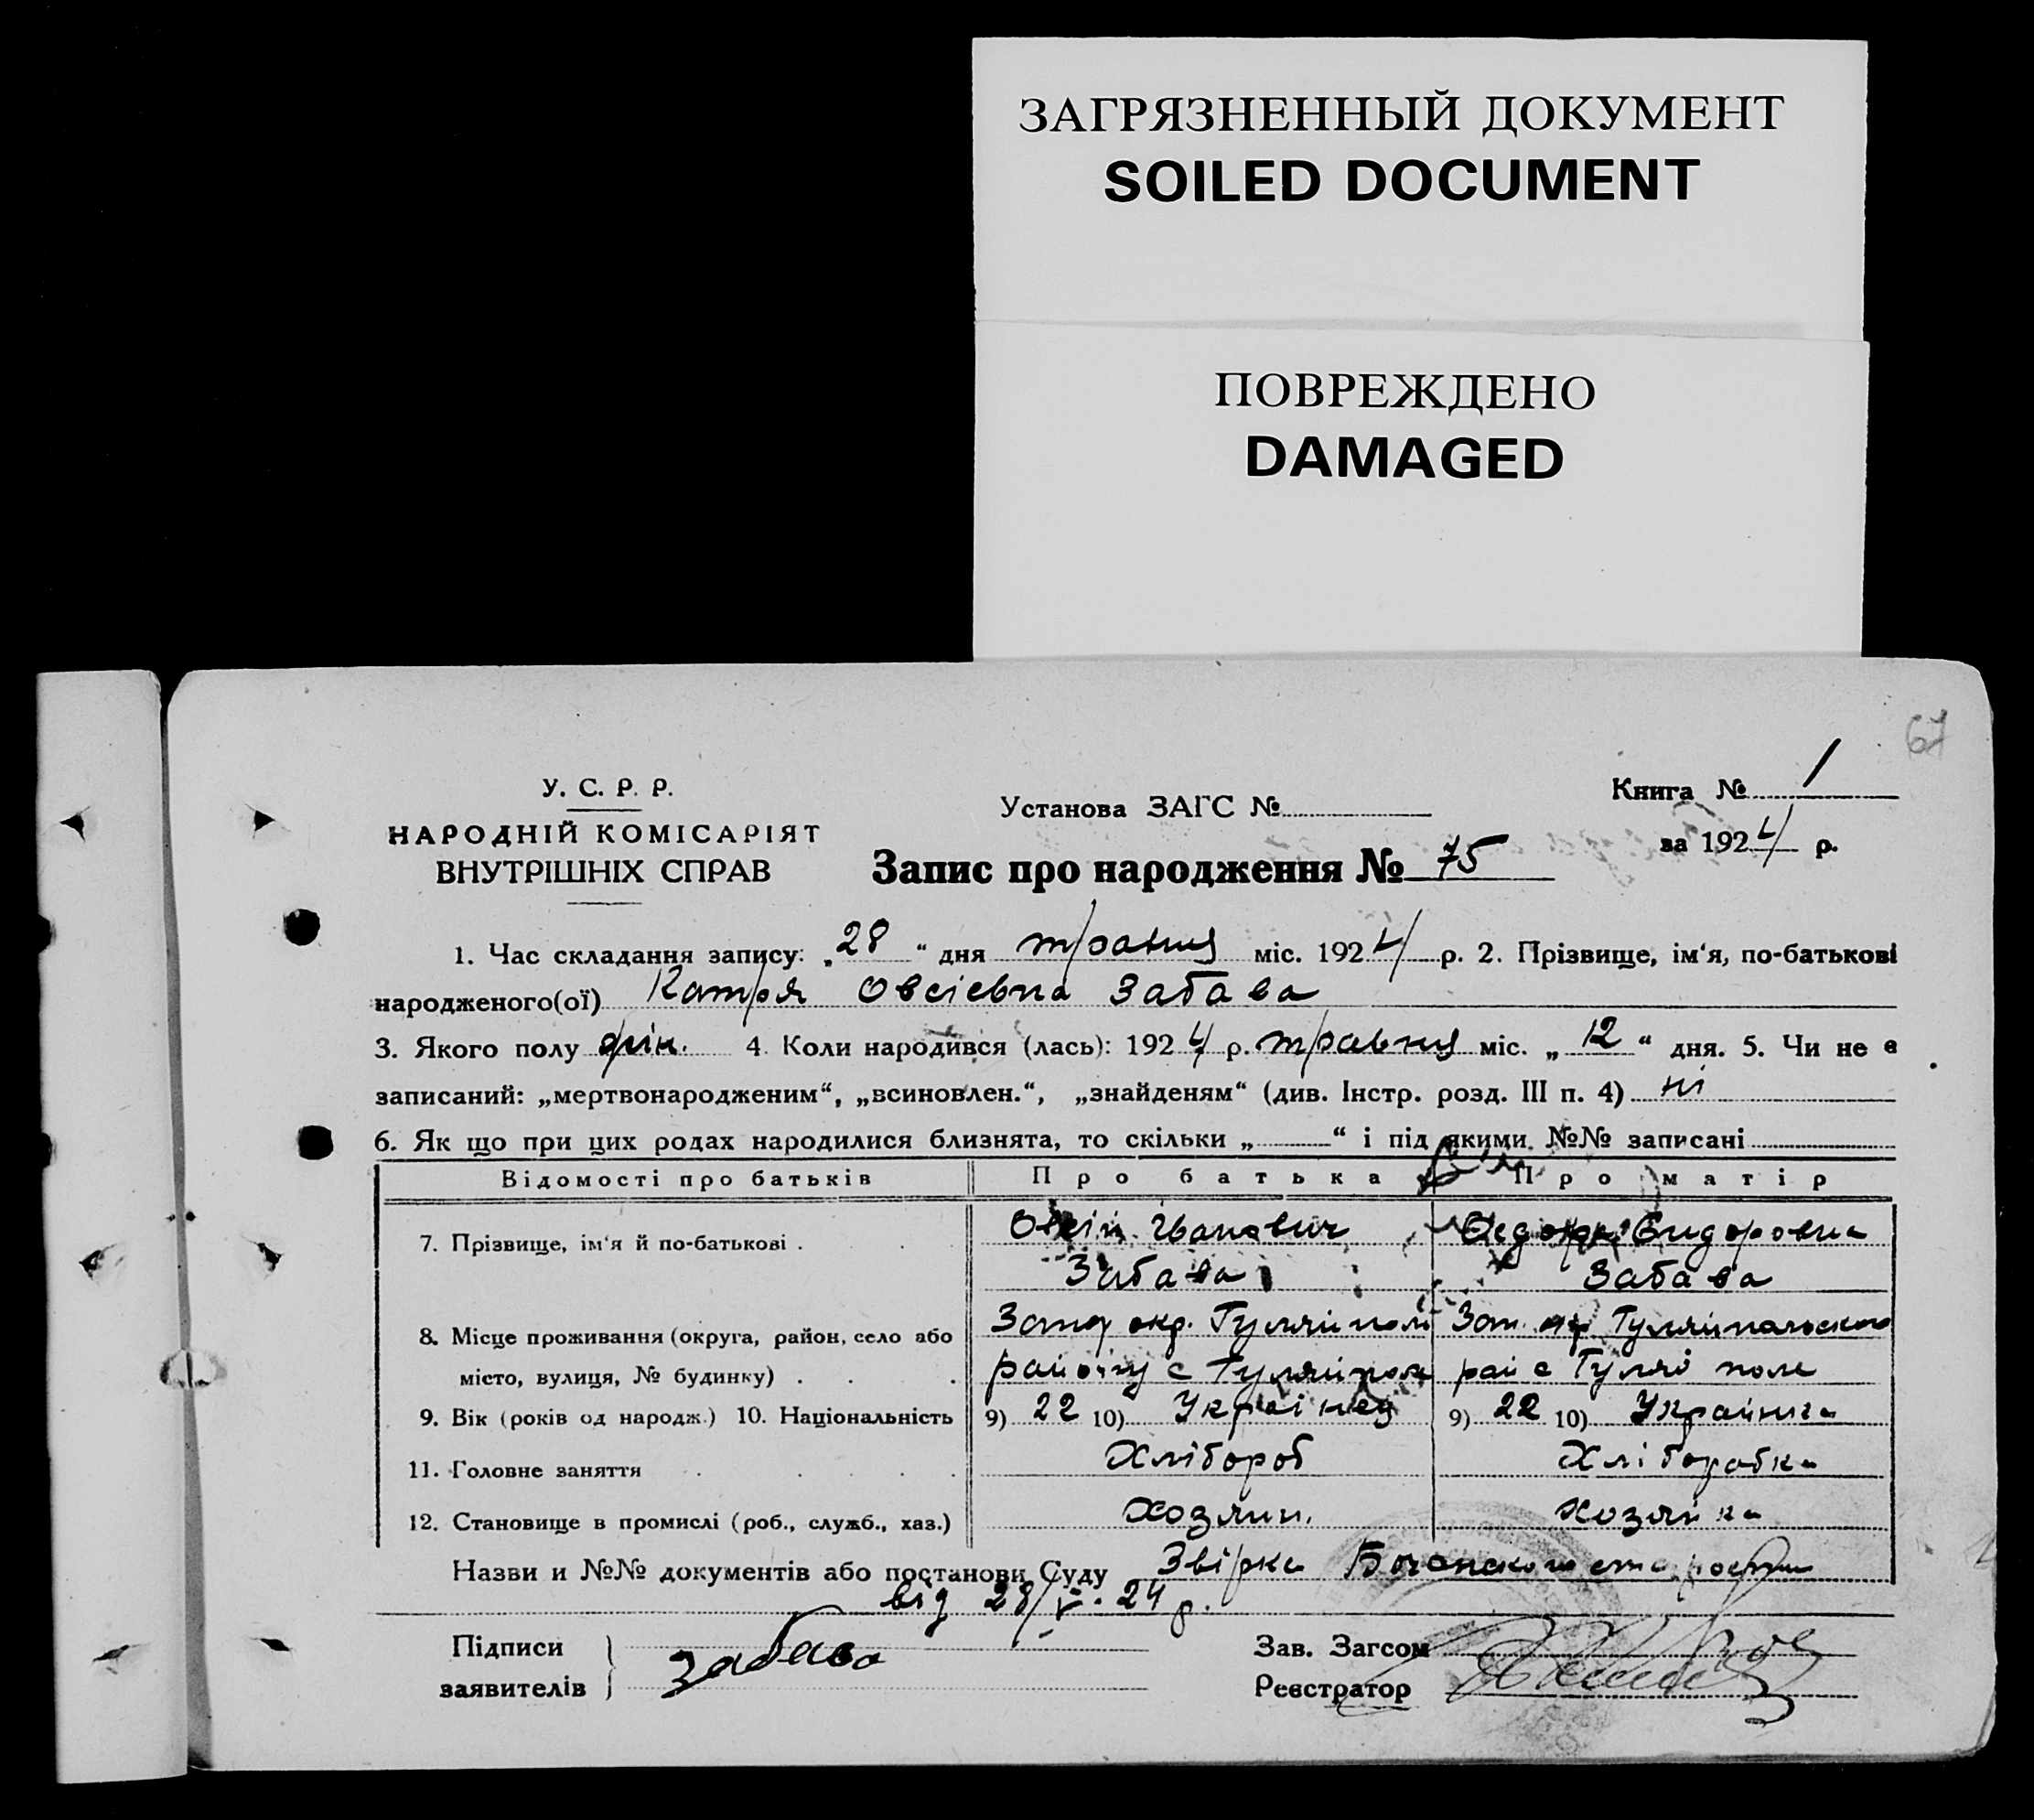 ЗАГРЯЗНЕННЫЙ ДОКУМЕНТ
SOILED DOCUMENT
ПОВРЕЖДЕНО
DAMAGED
67
У. С. Р. Р.
НАРОДНІЙ КОМІСАРІЯТ
ВНУТРІШНІХ СПРАВ
Установа ЗАГС №
Книга № 1
за 1924 р.
Запис про народження № 75
1. Час складання запису: „28“ дня травня міс. 1924 р. 2. Прізвище, ім‘я, по-батькові
народженого(ої) Катря Овсієвна Забава
3. Якого полу жін. 4. Коли народився (лась): 1924 р. травня міс. „12“ дня. 5. Чи не є
записаний: „мертвонародженим“, „всиновлен.“, „знайденям“ (див. Інстр. розд. III п. 4) ні
6. Як що при цих родах народилися близнята, то скільки „ “ і під якими №№ записані
Відомості про батьків Про батька Про матір
7. Прізвище, ім‘я й по-батькові . Овсій Іванович Сидоровна
Забава Забава
8. Місце проживання (округа, район, село або Запор окр. Гуляйполь Зап. окр Гуляйпольского
місто, вулиця, № будинку) . району с Гуляйполе рай с Гуляй поле
9. Вік (років од народж.) 10. Національність 9) 22 10) Украінец 9) 22 10) Украінка
11. Головне заняття Хлібороб Хліборобка
12. Становище в промислі (роб., служб., хаз.) Хозяин. хозяйка
Назви и №№ документів або постанови Суду Звірка
від 28/V-24 р.
Підписи
заявителів
Забава
Зав. Загсом
Реєстратор